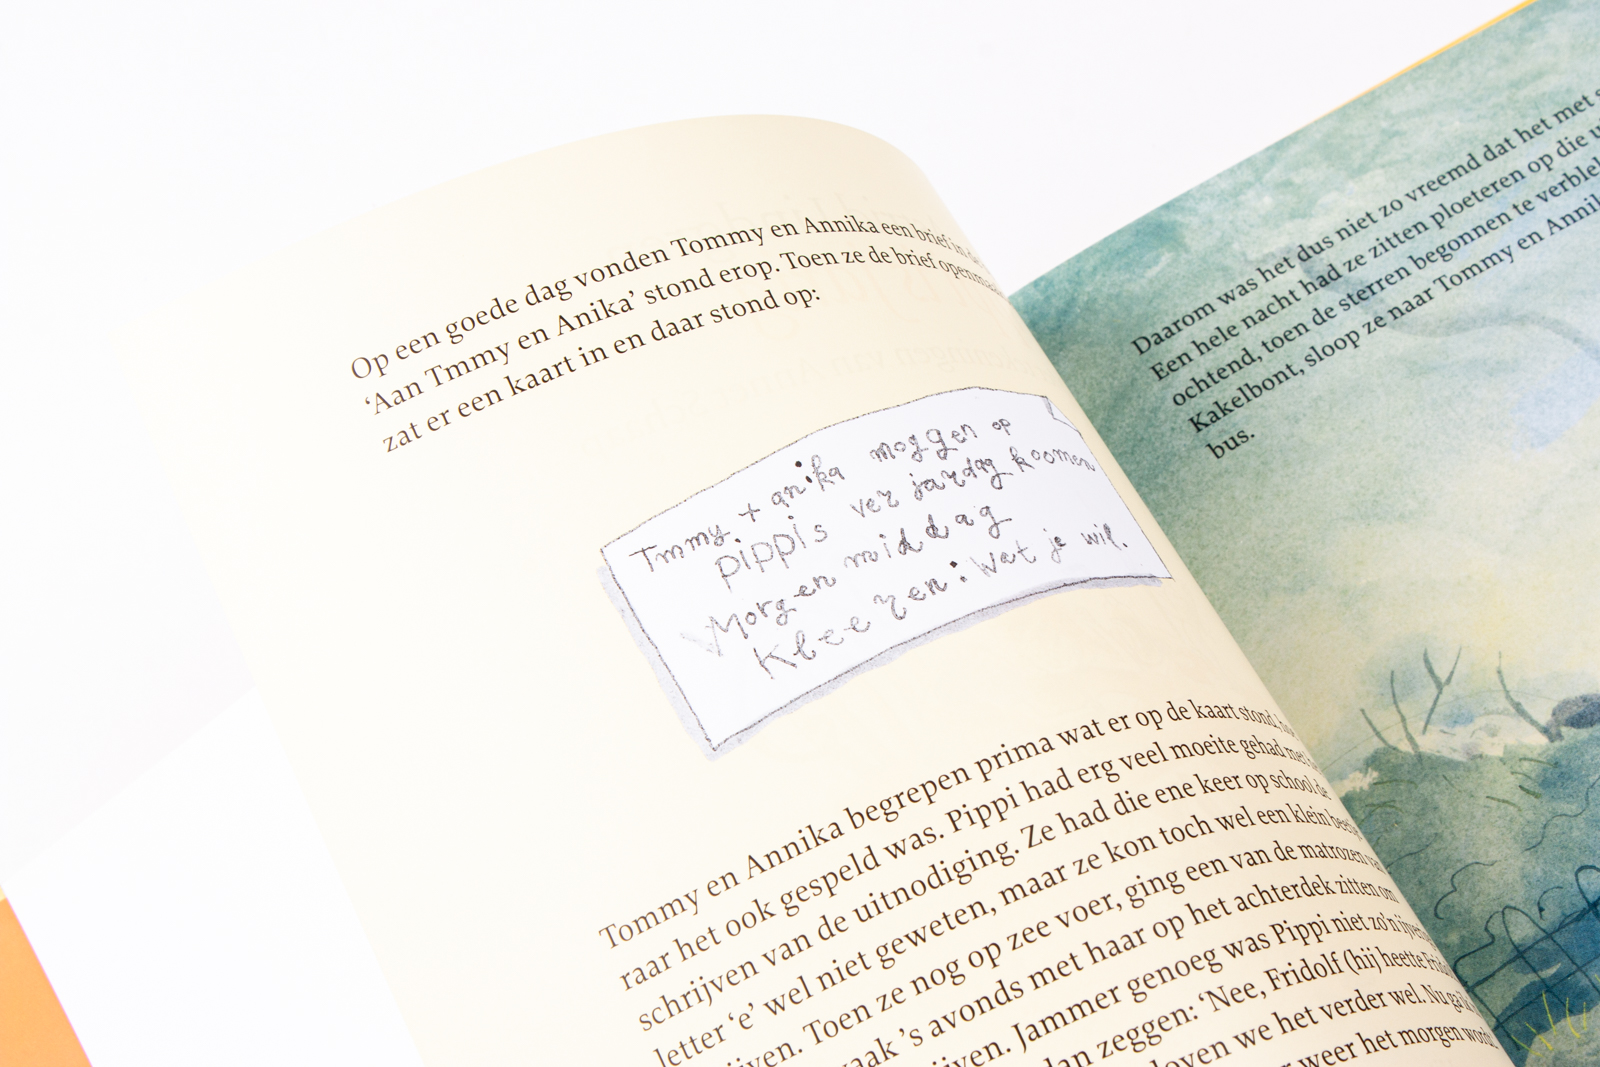 Op een goede dag vonden Tommy en Annika een brief in de
'Aan Tmmy en Anika' stond erop. Toen ze de brief openma
zat er een kaart in en daar stond op:
Tmmy + anika moggen op
pippis ver jardag koomen
Morgen middag
Kleeren: Wat je wil.
Tommy en Annika begrepen prima wat er op de kaart stond, ho
raar het ook gespeld was. Pippi had erg veel moeite gehad met
schrijven van de uitnodiging. Ze had die ene keer op school de
letter 'e' wel niet geweten, maar ze kon toch wel een klein beetje
ijven. Toen ze nog op zee voer, ging een van de matrozen van
aak 's avonds met haar op het achterdek zitten om
ijven. Jammer genoeg was Pippi niet zo'n ijverig
dan zeggen: 'Nee, Fridolf (hij heette Frido
loven we het verder wel. Nu ga
r weer het morgen wordt
Daarom was het dus niet zo vreemd dat het met s
Een hele nacht had ze zitten ploeteren op die u
ochtend, toen de sterren begonnen te verble
Kakelbont, sloop ze naar Tommy en Annik
bus.